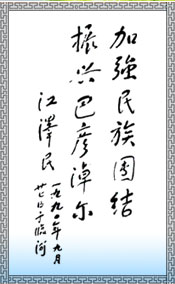 加強民族团结
振兴巴彦淖尔
江泽民
一九九二年九月
廿日于临河